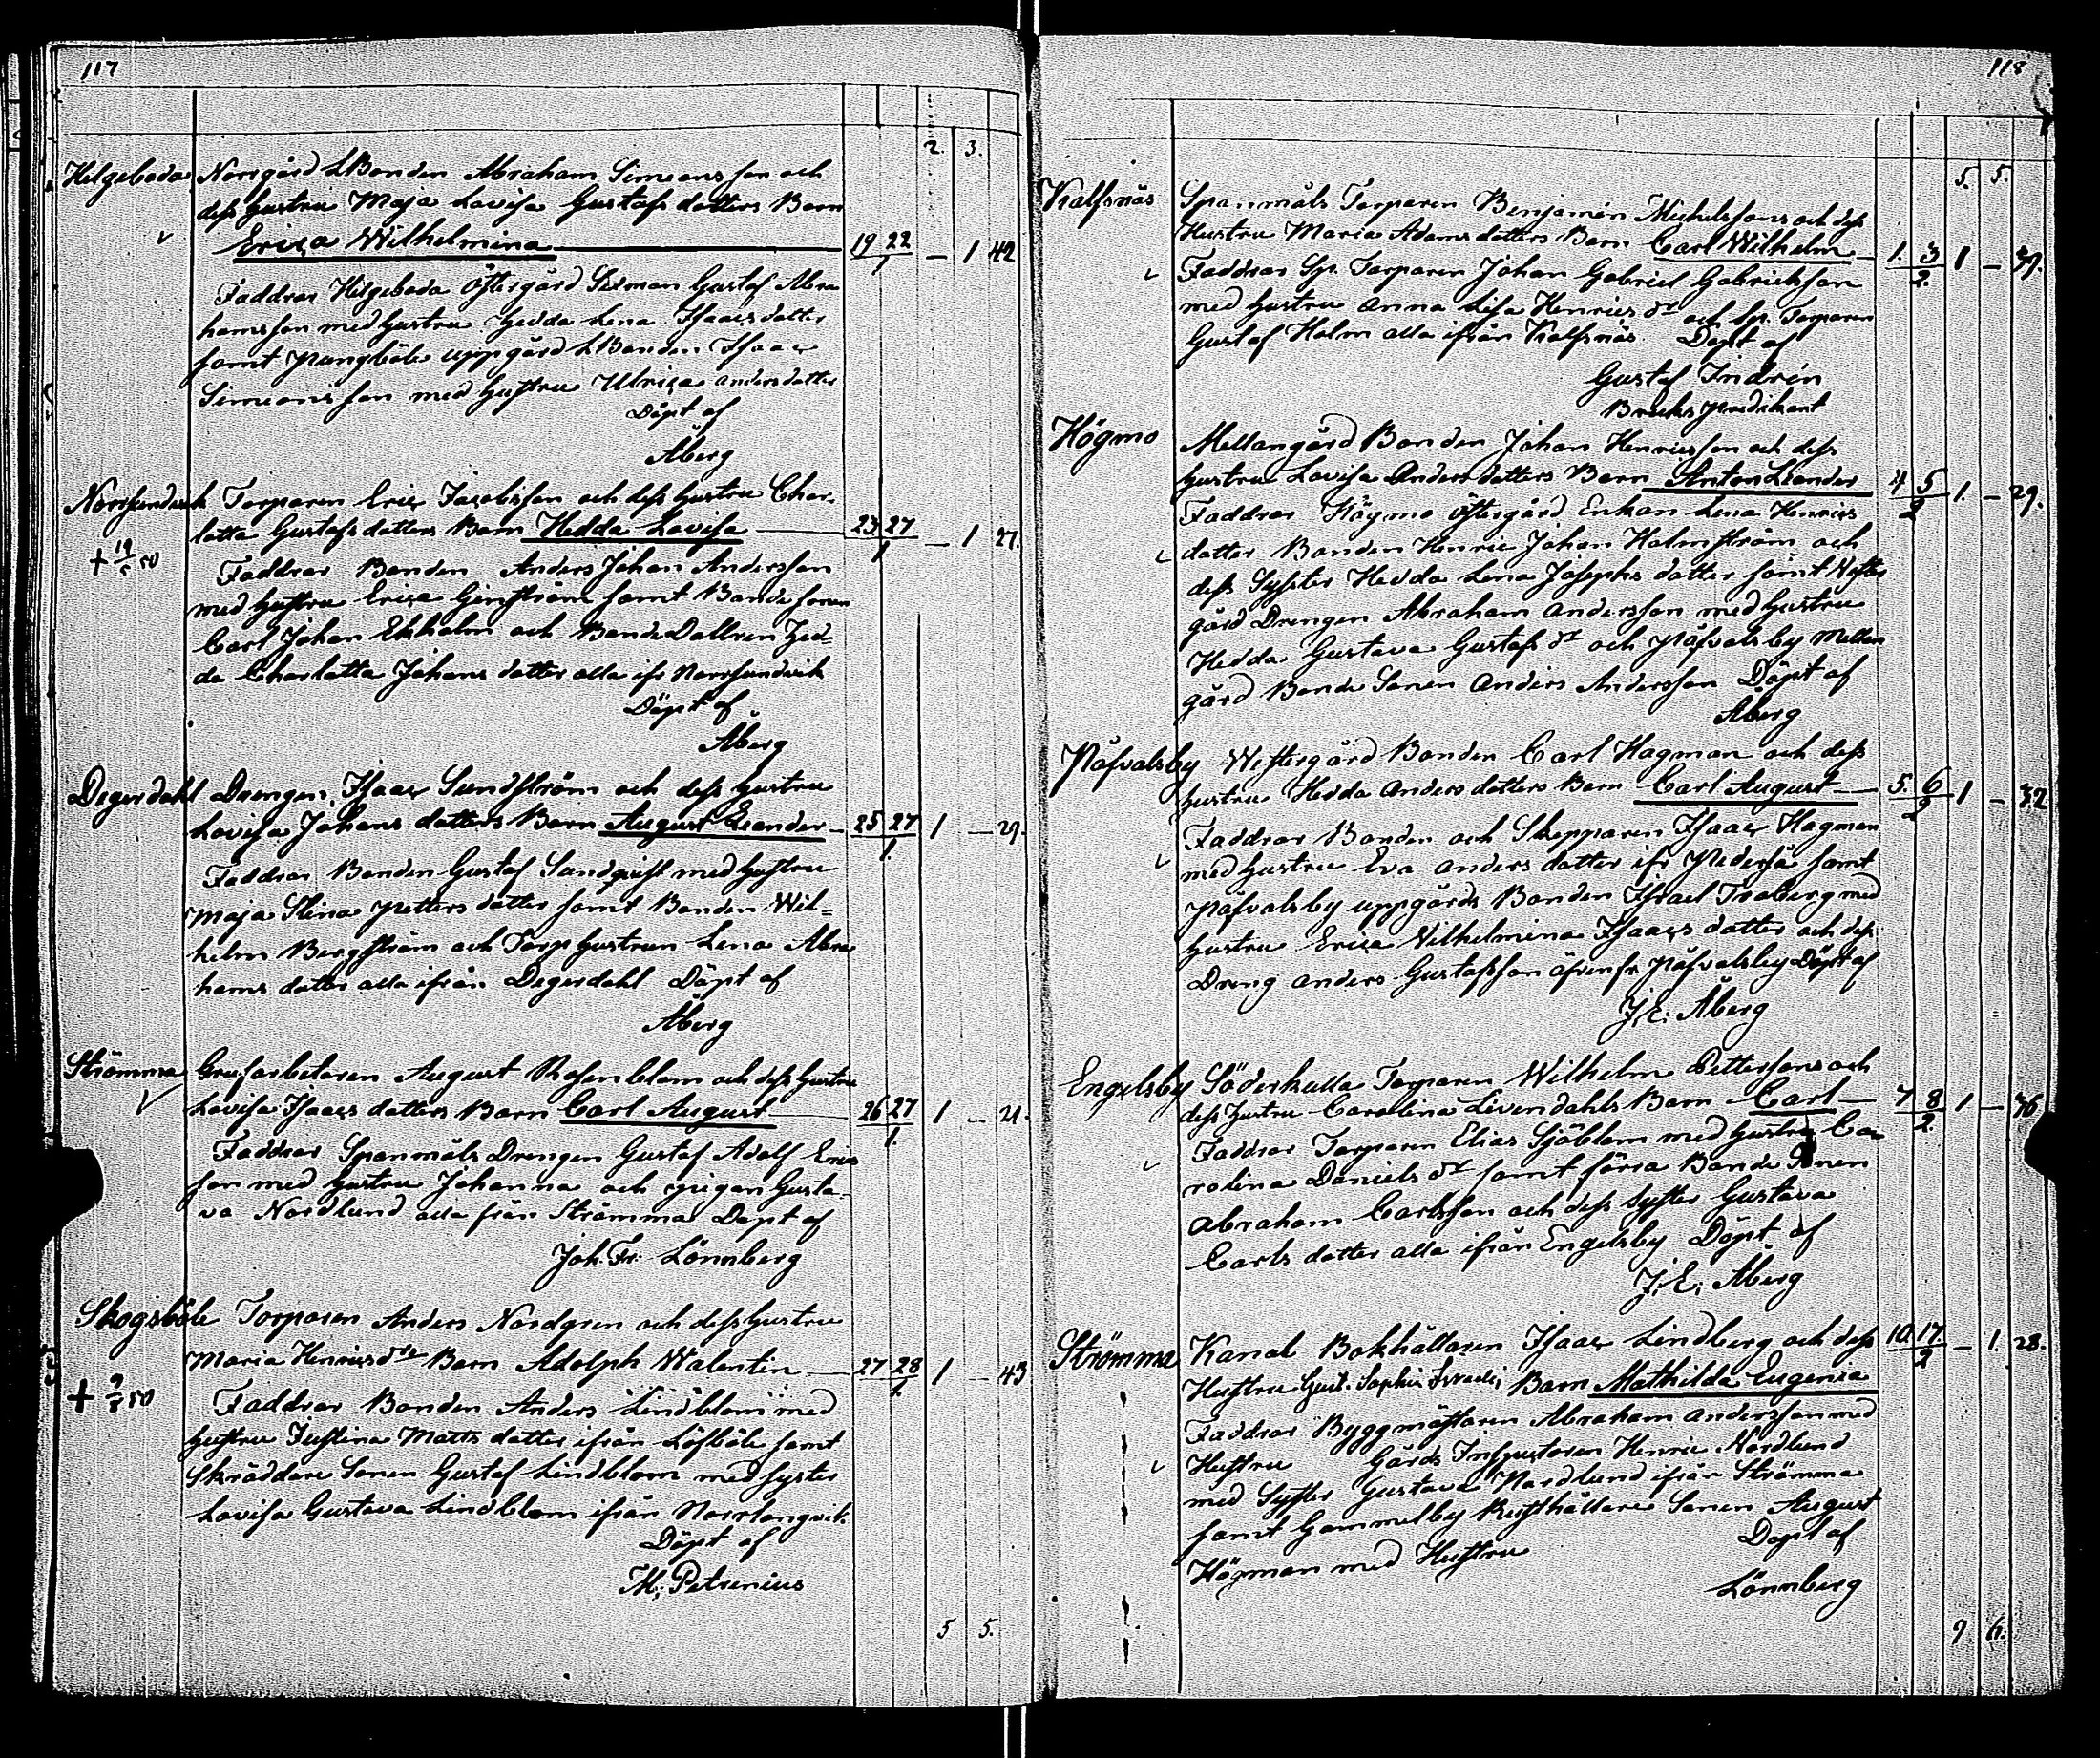 117
2. 3.
Helgeboda Norrgård LBonden Abraham Simeonsson och
dess hustru Maja Lovisa Gustafs dotters Barn
Erica Wilhelmina 19 22/1 — 1 42
Faddrar Helgeboda Östergård Sexman Gustaf Abra
hamsson med hustru Hedda Lena Isaacs dotter
samt Pungböle uppgård LBonden Isaac
Simeonsson med hustru Ulrica anders dotter
Döpt af
Åberg
Norrsundvik Torparen Eric Jacobsson och dess hustru Char-
lotta Gustafs dotters Barn Hedda Lovisa 23 27/1 — 1 27.
+ 19/5 50
Faddrar Bonden Anders Johan Andersson
med hustru Erica Genström samt Bondesonen
Carl Johan Ekholm och BondeDottren Hed=
da Charlotta Johans dotter alla ifr Norrsundvik
Döpt af
Åberg
Degerdahl Drengen Isaac Sundström och dess hustru
Lovisa Johans dotters Barn August Leander 25 27/1. 1 — 29.
Faddrar Bonden Gustaf Sandqvist med hustru
Maja Stina Petters dotter samt Bonden Wil=
helm Bergström och Torphustrun Lena Abra
hams dotter alla ifrån Degerdahl Döpt af
Åberg
Strömma Grufarbetaren August Rosenblom och dess hustru
Lovisa Isaacs dotters Barn Carl August 26 27/1. 1 — 21.
Faddrar Spanmåls Drengen Gustaf Adolf Erics
son med hustru Johanna och pigan Gusta
va Nordlund alla från Strömma Döpt af
Joh. Fr. Lönnberg
Skogsböle Torparen Anders Nordgren och dess hustru
Maria Henricsdtr Barn Adolph Walentin 27 28/1. 1 — 43
+ 9/8 50
Faddrar Bonden Anders Lindblom med
hustru Justina Matts dotter ifrån Löfböle samt
Skräddare Sonen Gustaf Lindblom med syster
Lovisa Gustava Lindblom ifrån Norrlangvik.
Döpt af
M. Petrenius
5 5.
118
5. 5.
Kalfsnäs Spanmåls Torparen Benjamin Michelssons och dess
Hustru Maria Adams dotters Barn Carl Wilhelm 1. 3/2. 1 — 39.
Faddrar Sp. Torparen Johan Gabriel Gabrielsson
med hustru Anna Lisa Henrics dtr och Sp. Torparen
Gustaf Holm alla ifrån Kalfsnäs. Döpt af
Gustaf Indrén
Bruks Predikant
Högmo Mellangård Bonden Johan Henricsson och dess
hustru Lovisa Anders dotters Barn Anton Leander 4 5/2 1. — 29.
Faddrar Högmo Östergård Enkan Lena Henrics
dotter Bonden Henric Johan Holmström och
dess Syster Hedda Lena Josephs dotter samt Wester
gård Drengen Abraham Andersson med hustru
Hedda Gustava Gustafs dtr och Påfvalsby Mellan
gård Bonde Sonen Anders Andersson Döpt af
Åberg
Påfvalsby Westergård Bonden Carl Hagman och dess
hustru Hedda Anders dotters Barn Carl August 5. 6/2 1 — 32
Faddrar Bonden och Skepparen Isaac Hagman
med hustru Eva anders dotter ifr Pederså samt
Påfvalsby uppgårds Bonden Israel Troberg med
hustru Erica Wilhelmina Isaacs dotter och dess
Dreng Anders Gustafsson äfven fr Påfvalsby Döpt af
J.E. Åberg
Engelsby Söderkulla Torparen Wilhelm Petterssons och
dess hustru Carolina Livendahls Barn Carl 7 8/2 1 — 36
Faddrar Torparen Elias Sjöblom med hustru Ca
rolina Daniels dtr samt förra Bonde Sonen
Abraham Carlsson och dess syster Gustava
Carls dotter alla ifrån Engelsby Döpt af
J.E. Åberg
Strömma Kanal Bokhållaren Isaac Lindberg och dess 10. 17./2 — 1. 28.
Hustru Gust. Sophia Israels Barn Mathilda Eugenia
Faddrar Byggmästaren Abraham Andersson med
Hustru Gårds Inspectoren Henric Nordlund
med Syster Gustava Nordlund ifrån Strömma
samt Gammelby Rusthållare Sonen August
Högman med Hustru Döpt af
Lönnberg
9 6.